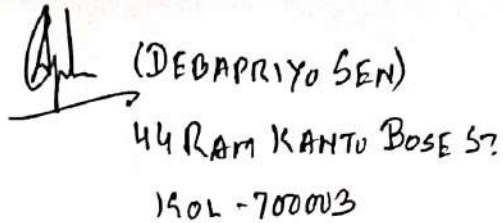 (DEBAPRIYO SEN)
44 RAM KANTO BOSE ST
KOL - 700003